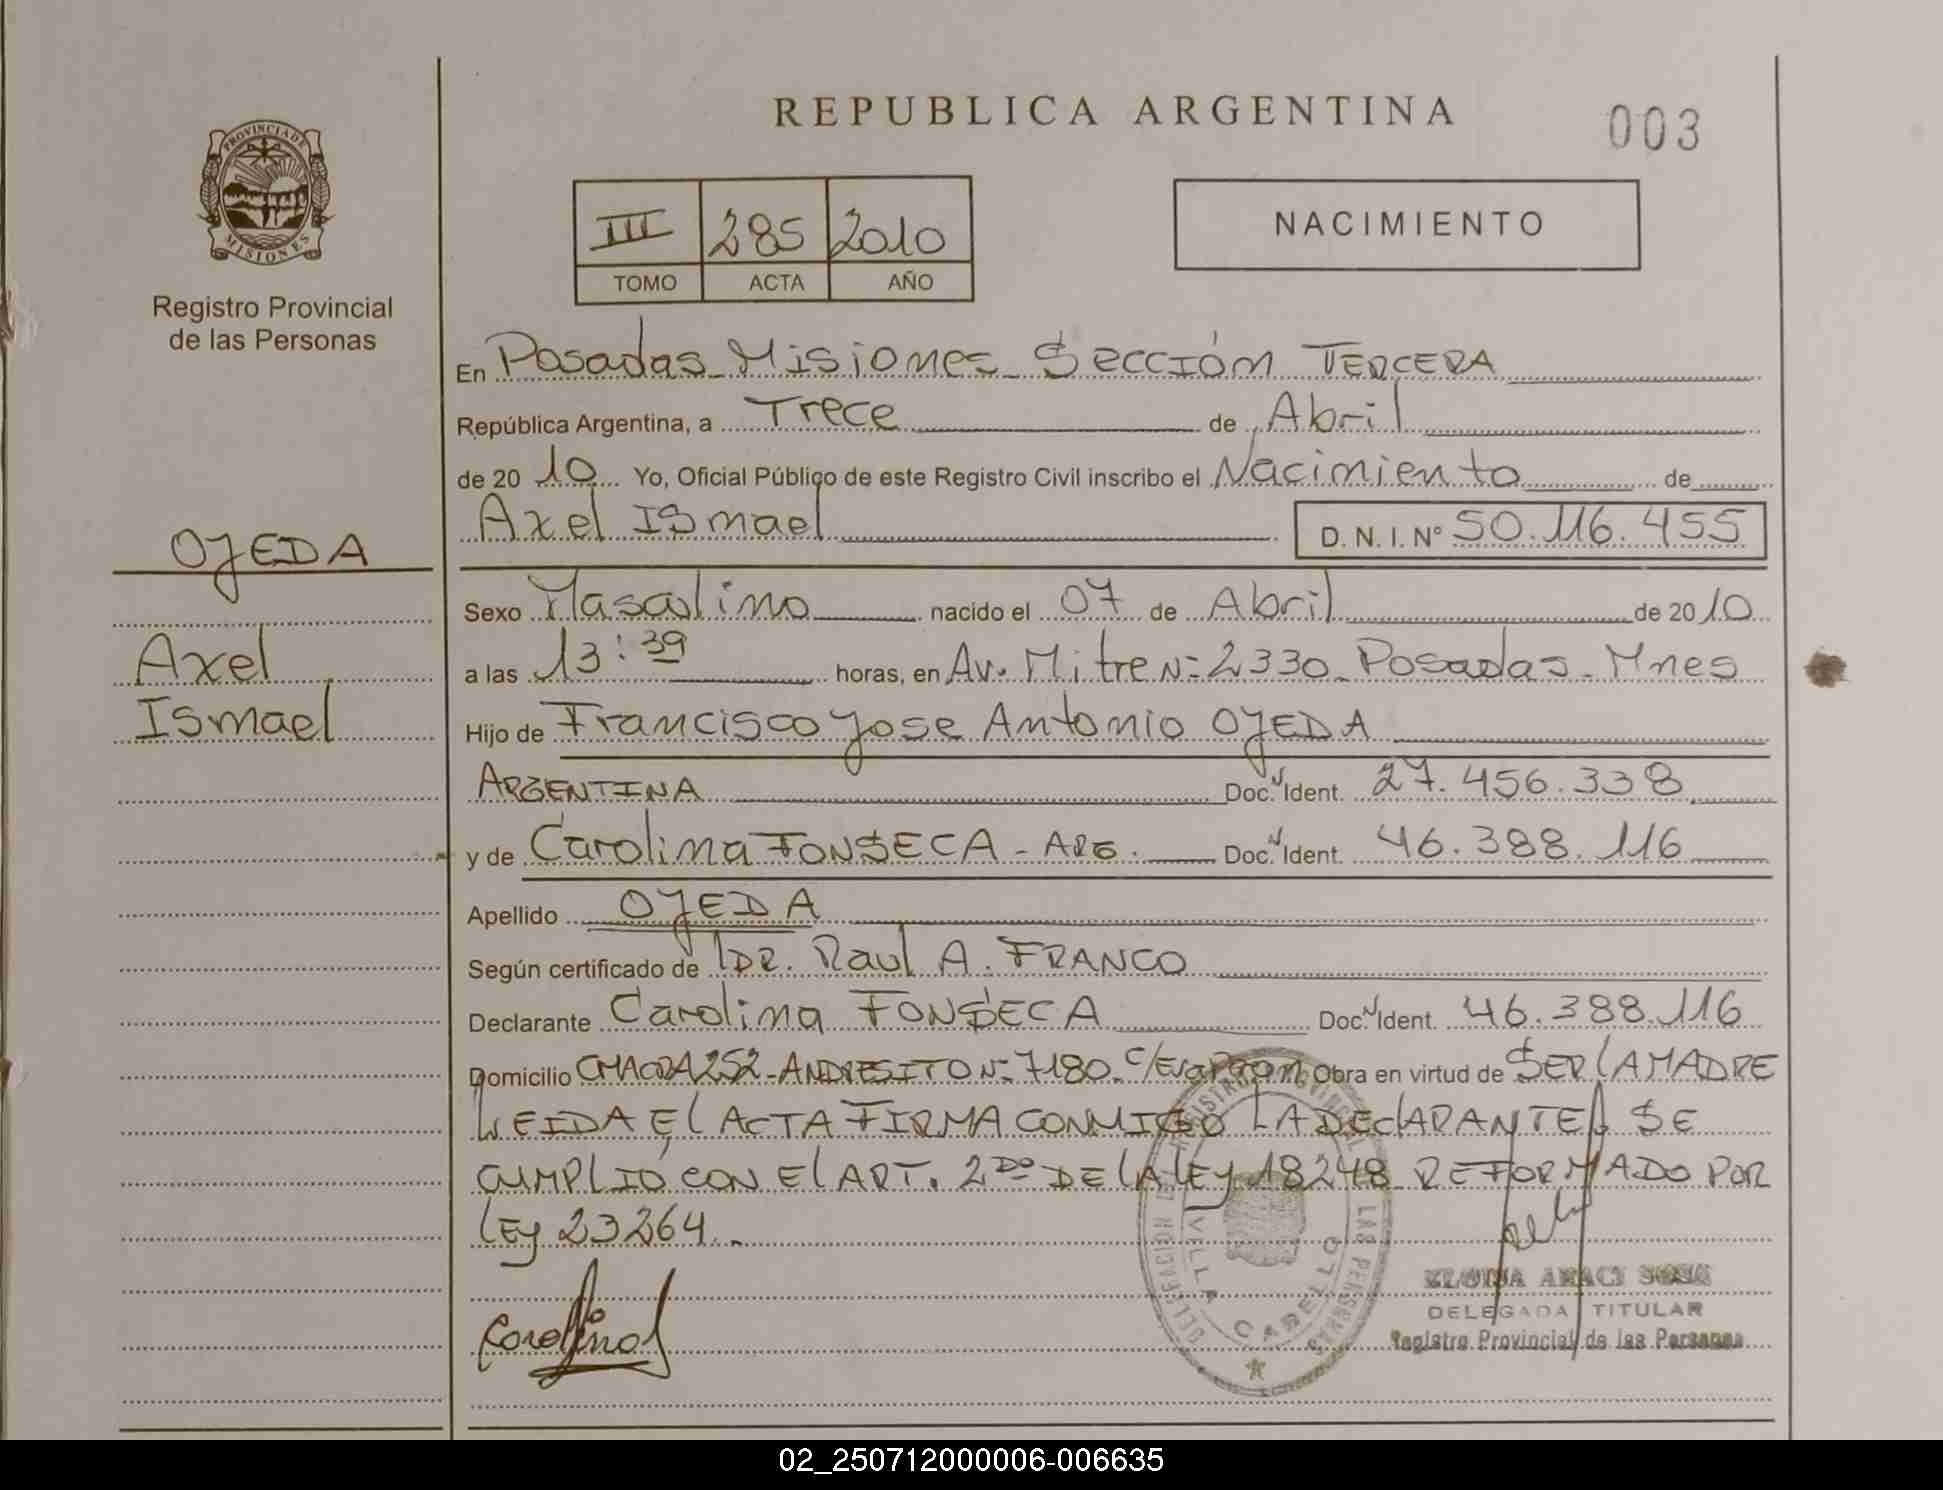 REPUBLICA ARGENTINA
003
PROVINCIA DE
MISIONES
Registro Provincial
de las Personas
III 285 2010
TOMO ACTA AÑO
NACIMIENTO
En Posadas Misiones Sección TERCERA
República Argentina, a Trece de Abril
de 2010 Yo, Oficial Público de este Registro Civil inscribo el Nacimiento de
Axel Ismael D. N. I. Nº 50.116.455
OJEDA
Axel
Ismael
Sexo Masculino nacido el 07 de Abril de 2010
a las 13:39 horas, en Av. Mitre Nº 2330 Posadas - Mnes
Hijo de Francisco Jose Antonio OJEDA
ARGENTINA Doc. Ident. 27.456.338
y de Carolina FONSECA - ARG. Doc. Ident. 46.388.116
Apellido OJEDA
Según certificado de DR. Raul A. FRANCO
Declarante Carolina FONSECA Doc. Ident. 46.388.116
Domicilio CHACRA 252 - ANDRESITO Nº 7180 c/Eva Peron Obra en virtud de SER LA MADRE
LEIDA El ACTA FIRMA CONMIGO LA DEClARANTE SE
CUMPLIÓ CON El ART. 2DO DE lA lEy 18248 REFORMADO POR
lEy 23264.
Carolina
DELEGACION REGISTRO PROVINCIAL LAS PERSONAS
VILLA CABELLO
ARACI SOSA
DELEGADA TITULAR
Registro Provincial de las Personas
02_250712000006-006635